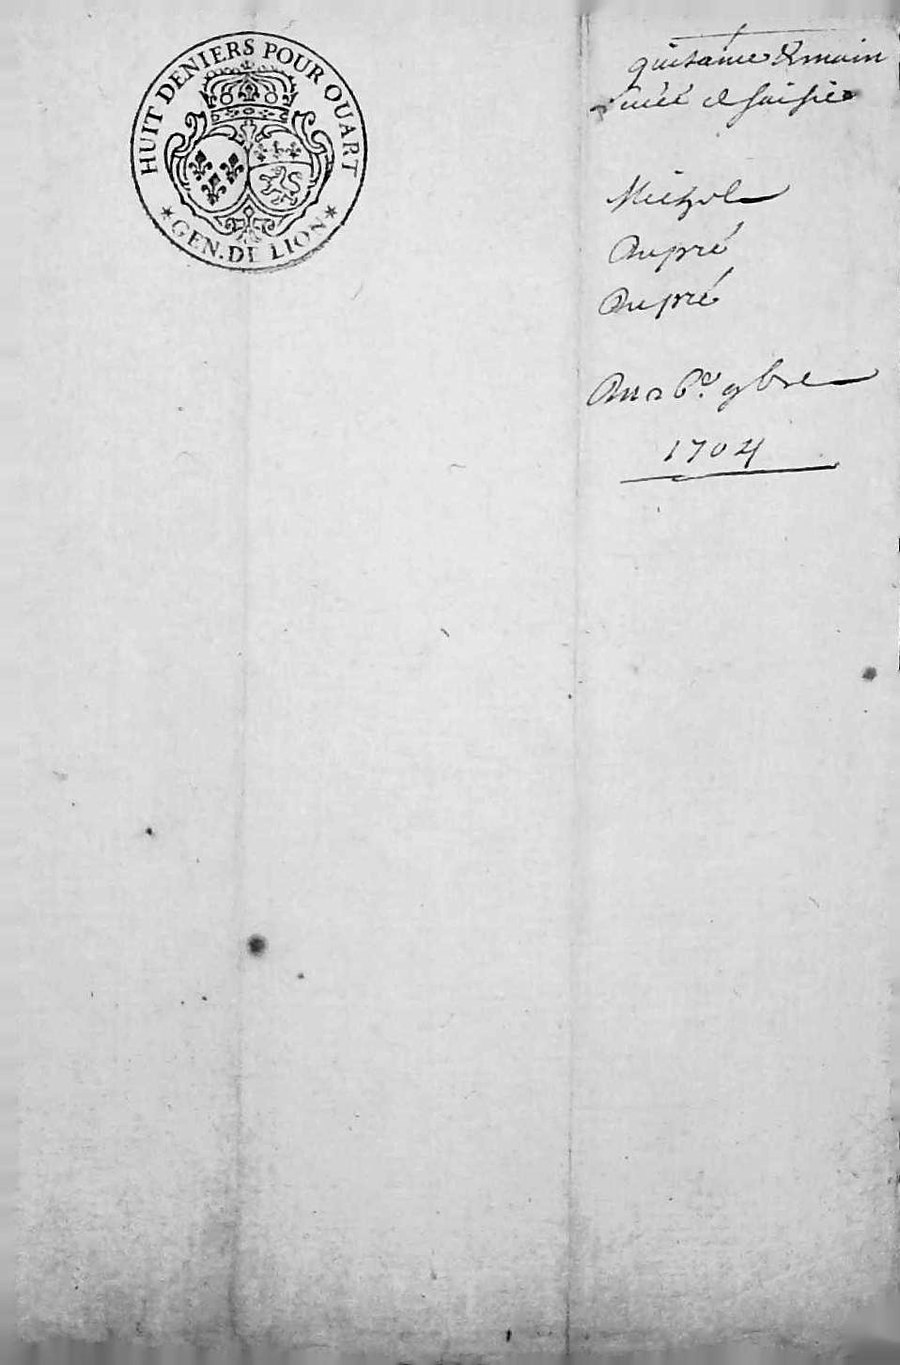 HUIT DENIERS POUR QUART
GEN. DE LION
quitance & main
levée de saisie
Michol
Dupré
Dupré
Du 26.e 9bre
1704